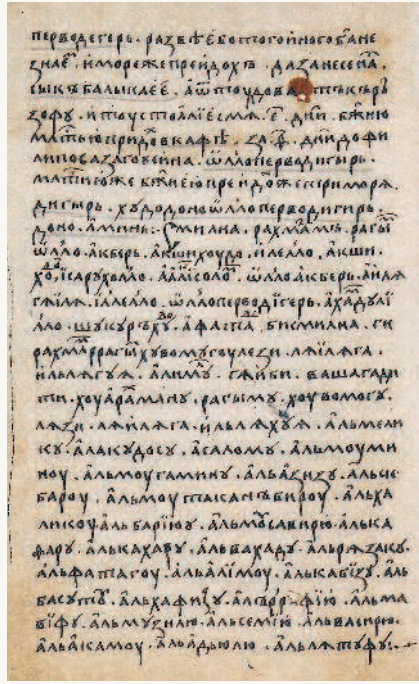 перводегерь. развѣ е҆бо того и҆ного бг҃а не
знае҆м. и҆ море же преидохъ. да занесе нꙑ.
сык ъбалыкае е. а҆ ѿтоудова къ тръ
зофу. и҆ ту стоалі е҆смѧ. е҃. дн҃и. бж҃ию
мл҃тью придохъ в кафѣ. за. ѳ҃. дн҃и до фи
липова заговеина. ѡ҆лло перводигырь.
мл҃тию же бж҃иею преидохъ же три моря.
дигырь. худо доно ѡ҆лло перводигирь.
доно. а҆минь: смилна. рахмамъ. рагы
ѡ҆лло. а҆кберь. а҆кши худо. и҆лелло. а҆кши.
ходо. і҆сарухолло. а҆аликсоломъ. ѡ҆лло а҆кберь. а҆илꙗ
гꙗилѧ. і҆лелло. ѡ҆лло перводигерь. а҆хамдулі
лло. шукуръ худо. а҆фатад. бисмилна. ги
рахмамъ рррагымъ хувомугоулези. лꙗілѧга.
ильлѧгуꙗ. а҆лимулъ. гꙗиби. вашагади
ти. хоуа҆рахману. рагыму. хоувомогу.
лѧзи. лꙗилѧга. ильлѧхуꙗ. а҆льмели
ку. а҆лакудосу. а҆салому. а҆льмоуми
ноу. а҆льмоугамину. а҆льа҆зизу. а҆льче
бароу. а҆льмоутаканъбироу. а҆льха
ликоу а҆льбариюу. а҆льмусавирю. а҆лька
фару. а҆лькахару. а҆львахаду. а҆льрѧзаку.
а҆льфатагоу. а҆льа҆лимоу. а҆лькабизу. а҆ль
басуту. а҆льхафизу. а҆лъррафию. а҆льма
вифу. а҆льмузилю. а҆льсемию. а҆львасирю.
а҆льа҆камоу. а҆льа҆дьюлю. а҆льлѧтуфу.